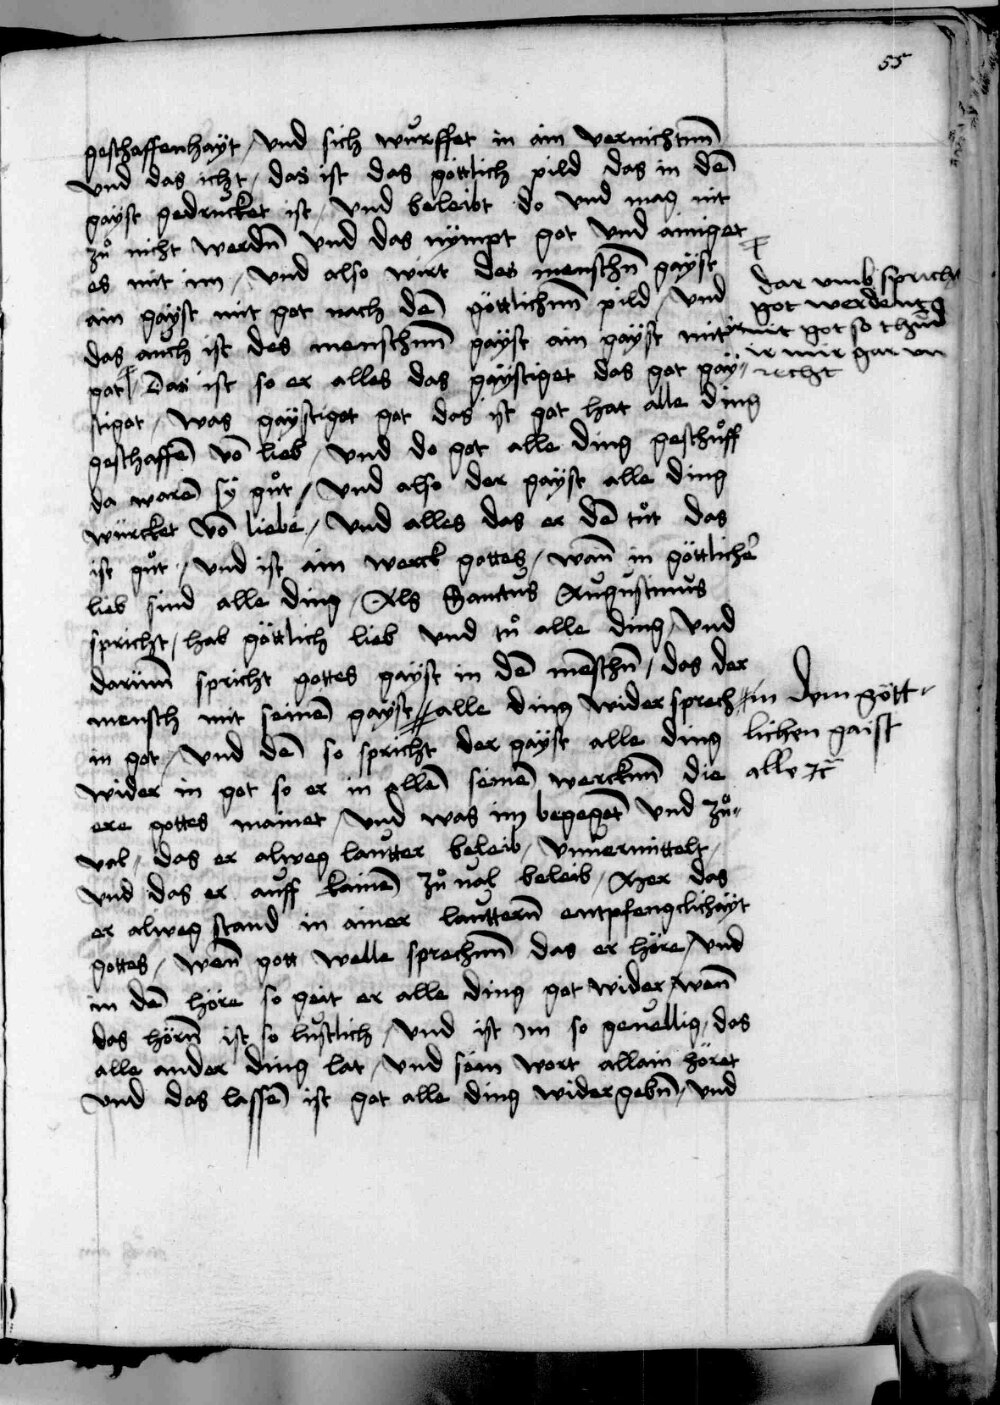 55
geschaffenhaÿt / Vnd sich wurffet in ain vernichtnn̄
Vnd das icht / das ist das göttlich pild das in dē
gaÿst gedrucket ist / Vnd beleibt do Vnd mag nit
zů nicht werdn̄ Vnd das nÿmpt got Vnd ainiget
es mit im / Vnd also wirt des menschn̄ gaÿst
ain gaÿst mit got nach dē göttlichnn̄ pild / Vnd
das auch ist des menschnn̄ gaÿst ain gaÿst mit
got / Das ist so er alles das gaÿstiget das got gaÿ-
stiget / Was gaÿstiget got das ist got hat alle ding
geschaffē vō lieb / Vnd do got alle ding geschůff
da warē sÿ gůt / Vnd also der gaÿst alle ding
würcket vō liebe / Vnd alles das er dē tůt das
ist gůt / Vnd ist ain werck gottes / wan̄ in göttlicher
lieb sind alle ding / Als Sanctus Augustinus
spricht / hab göttlich lieb vnd tů alle ding / Vnd
darūm spricht gottes gaÿst in dē mēschn̄ / das der
mensch mit seinē gaÿst alle ding wider sprech
in got / Vnd dē so spricht der gaÿst alle ding
wider in got so er in allē seinē wercknn̄ die
ere gottes mainet / Vnd was im begeget Vnd zů-
val / das er alweg lautter beleib / Vnuermittelt /
Vnd das er auff kainē zůual beleib / Mer das
er alweg stand in ainer lauttern̄ entpfengclichaÿt
gottes / Wen̄ gott welle sprechnn̄ das er höre / Vnd
in dē höre so geit er alle ding got wider / Wen̄
das hörn̄ ist so lustlich / Vnd ist im so geuellig / das
alle ander ding lat / Vnd sein wort allain höret
Vnd das lassē ist got alle ding wider gebn̄ / Vnd
dar vmb spricht
got werdent
ir nit got so thūd
ir mir gar vn
recht
in dem gött-
lichen gaist
alle ⁊c̄